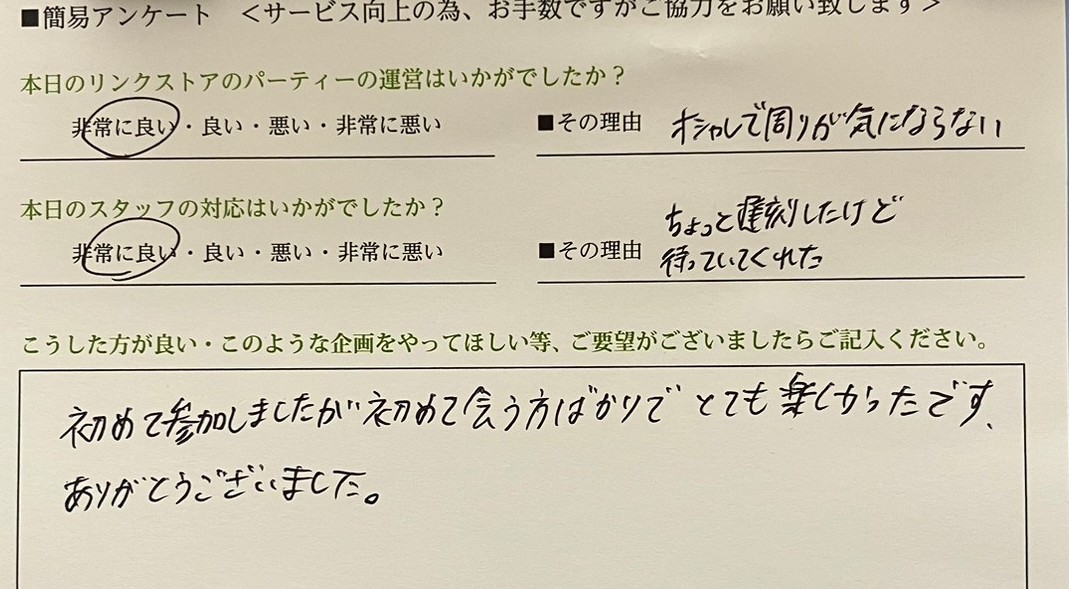 ■簡易アンケート ＜サービス向上の為、お手数ですがご協力をお願い致します＞
本日のリンクストアのパーティーの運営はいかがでしたか？
非常に良い・良い・悪い・非常に悪い ■その理由 オシャレで周りが気にならない
本日のスタッフの対応はいかがでしたか？
ちょっと遅刻したけど
非常に良い・良い・悪い・非常に悪い ■その理由 待っていてくれた
こうした方が良い・このような企画をやってほしい等、ご要望がございましたらご記入ください。
初めて参加しましたが初めて会う方ばかりでとても楽しかったです、
ありがとうございました。